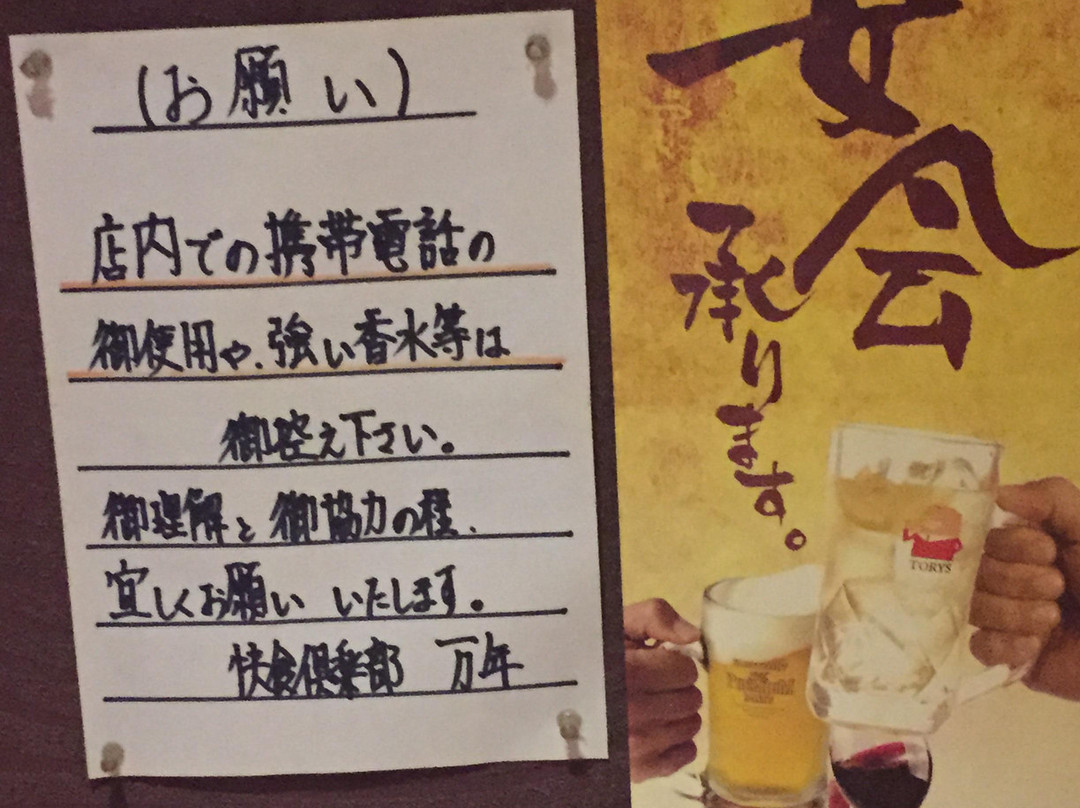 (お願い)
店内での携帯電話の
御使用や、強い香水等は
御控え下さい。
御理解と御協力の程、
宜しくお願い いたします。
快食倶楽部 万年
女会
承ります。
TORYS